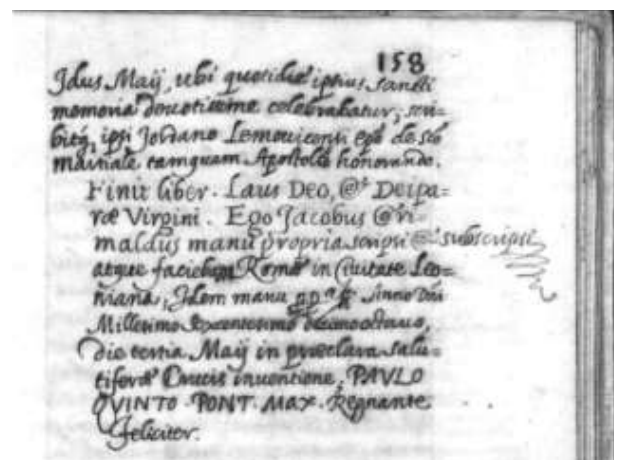 158
Idus Maij, ubi quotidie ipsius sancti
memoria deuotissime celebrabatur; scri=
bitq, ipsi Jordano Lemouicensi epõ de Sctõ
Martiale tamquam Apostolo honorando.
Finit liber. Laus Deo, & Deipa=
ræ Virgini. Ego Jacobus Gri=
maldus manu propria scripsi & subscripsi
atque faciebam Romæ in Ciuitate Leo=
niana, Idem manu ppª Anno Dñi
Millesimo Sexcentesimo decimooctauo,
die tertia Maij in præclara salu=
tiferæ Crucis inuentione, PAVLO
QVINTO PONT. MAX. Regnante
feliciter.